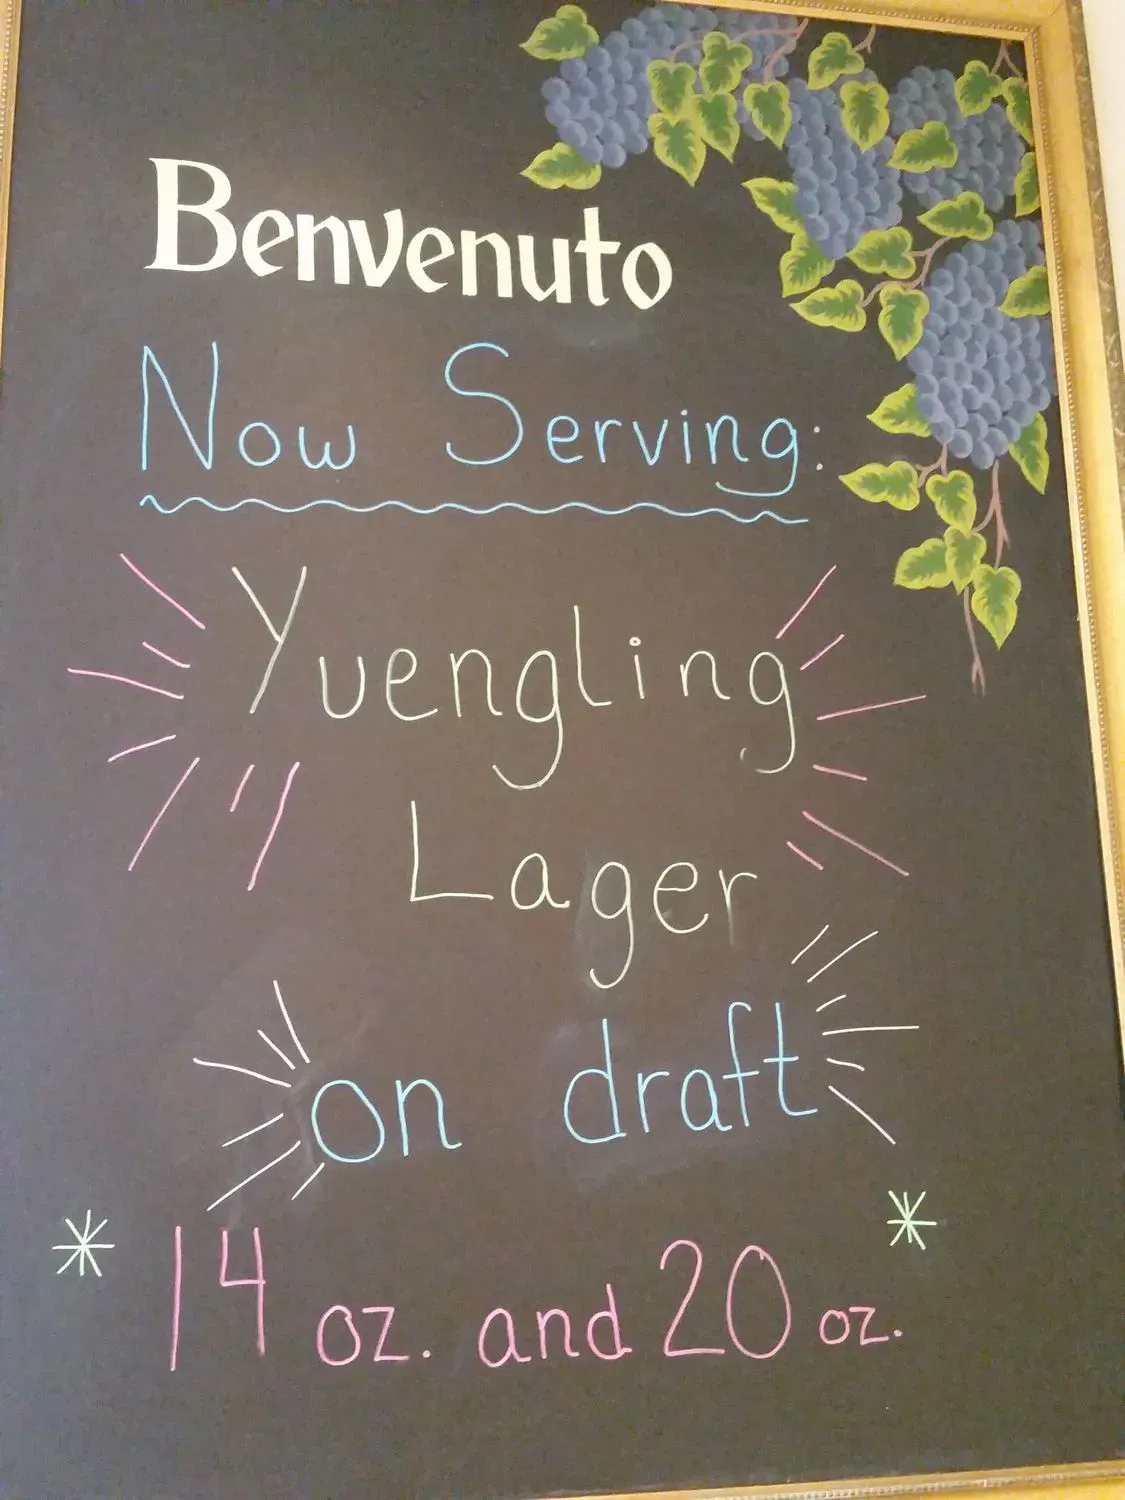 Benvenuto
Now Serving:
Yuengling
Lager
on draft
* 14 oz. and 20 oz. *